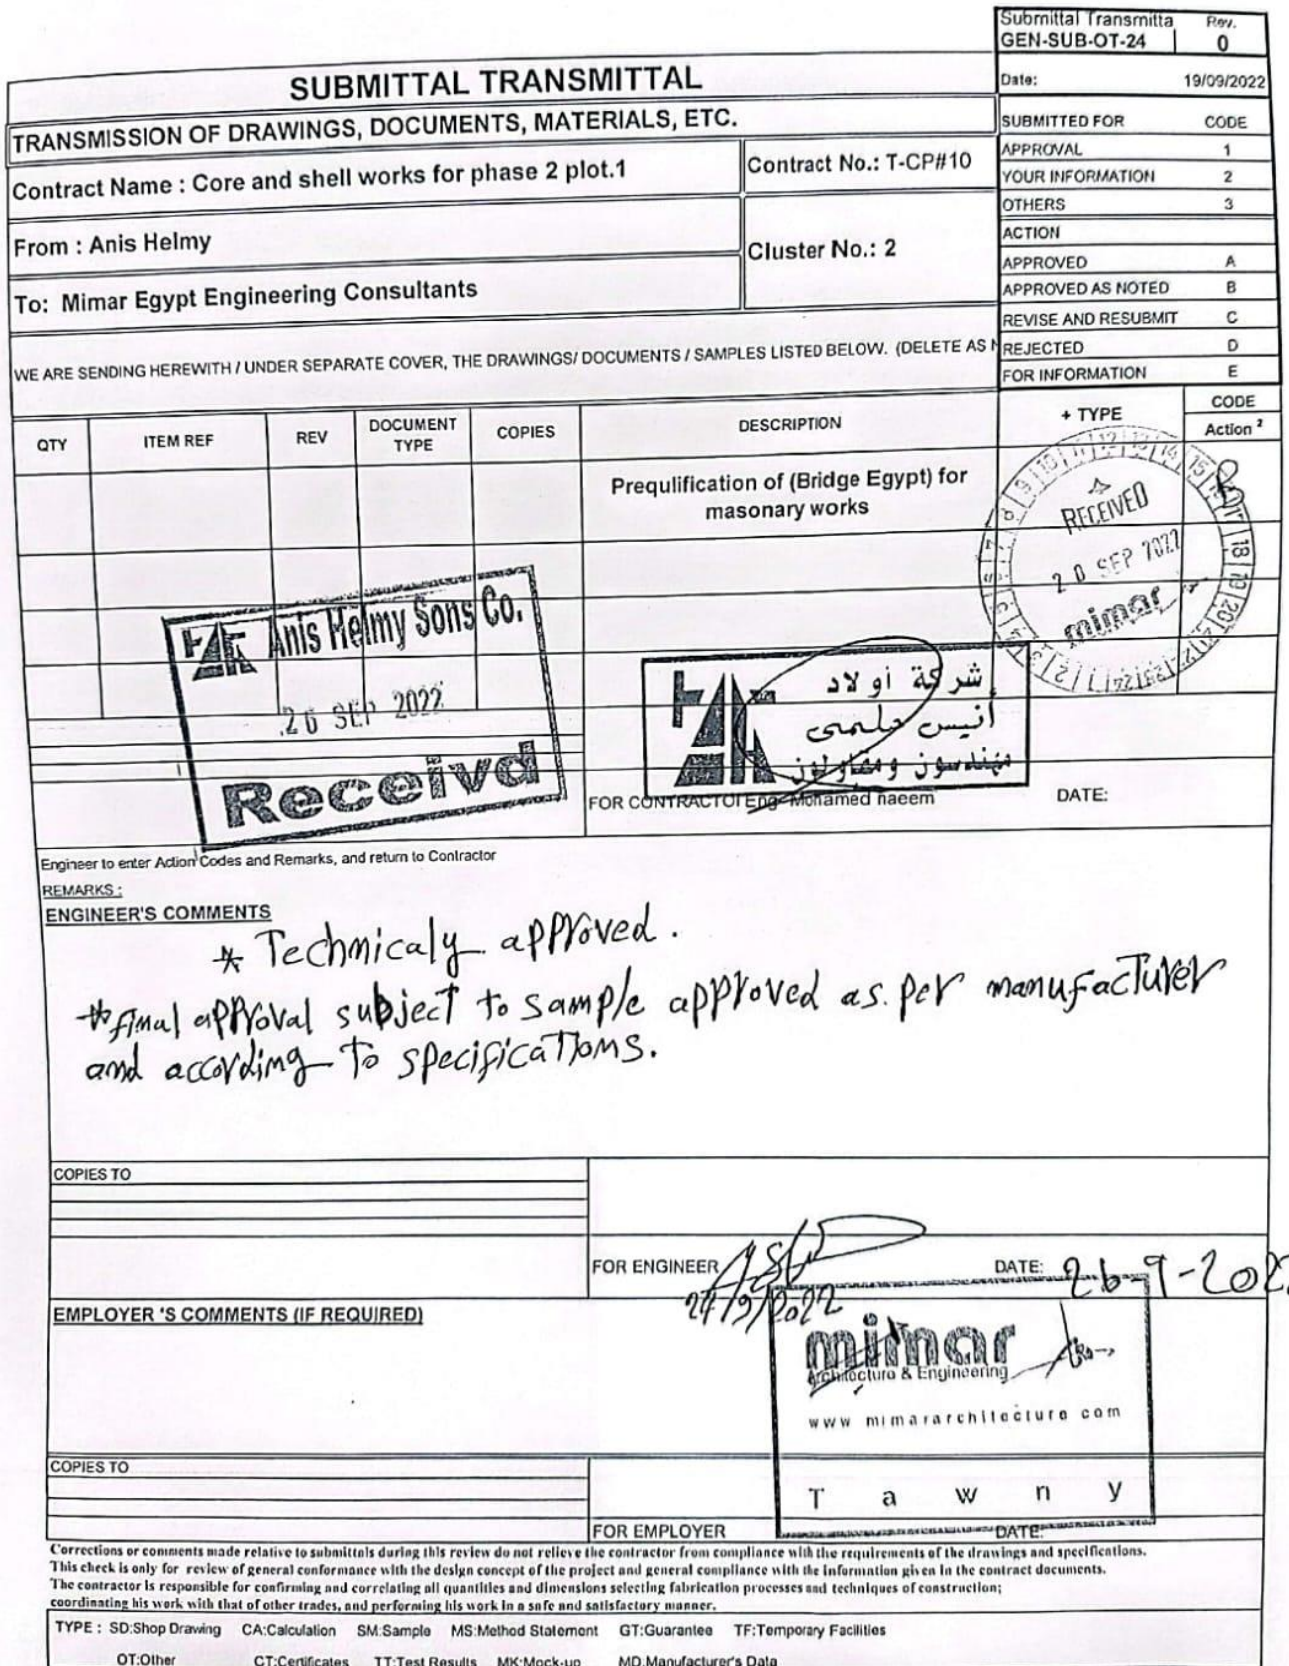 Submittal Transmitta Rev.
GEN-SUB-OT-24 0
SUBMITTAL TRANSMITTAL
Date: 19/09/2022
TRANSMISSION OF DRAWINGS, DOCUMENTS, MATERIALS, ETC.
SUBMITTED FOR CODE
APPROVAL 1
YOUR INFORMATION 2
OTHERS 3
Contract Name : Core and shell works for phase 2 plot.1
Contract No.: T-CP#10
From : Anis Helmy
Cluster No.: 2
To: Mimar Egypt Engineering Consultants
ACTION
APPROVED A
APPROVED AS NOTED B
REVISE AND RESUBMIT C
REJECTED D
FOR INFORMATION E
WE ARE SENDING HEREWITH / UNDER SEPARATE COVER, THE DRAWINGS/ DOCUMENTS / SAMPLES LISTED BELOW. (DELETE AS
QTY ITEM REF REV DOCUMENT TYPE COPIES DESCRIPTION + TYPE CODE
Action ²
Prequlification of (Bridge Egypt) for
masonary works
RECEIVED
20 SEP 2022
mimar
Anis Helmy Sons Co.
26 SEP 2022
Receivd
شركة أولاد
أنيس حلمى
مهندسون ومقاولون
FOR CONTRACTOR Eng- Mohamed naeem DATE:
Engineer to enter Action Codes and Remarks, and return to Contractor
REMARKS :
ENGINEER'S COMMENTS
* Technicaly approved.
* final approval subject to sample approved as. per manufacturer
and according to specifications.
COPIES TO
FOR ENGINEER DATE: 26-9-202
24/9/2022
EMPLOYER 'S COMMENTS (IF REQUIRED)
mimar
Architecture & Engineering
www mimararchitecture com
Tawny
COPIES TO
FOR EMPLOYER DATE:
Corrections or comments made relative to submittals during this review do not relieve the contractor from compliance with the requirements of the drawings and specifications.
This check is only for review of general conformance with the design concept of the project and general compliance with the information given in the contract documents.
The contractor is responsible for confirming and correlating all quantities and dimensions selecting fabrication processes and techniques of construction;
coordinating his work with that of other trades, and performing his work in a safe and satisfactory manner.
TYPE : SD:Shop Drawing CA:Calculation SM:Sample MS:Method Statement GT:Guarantee TF:Temporary Facilities
OT:Other CT:Certificates TT:Test Results MK:Mock-up MD.Manufacturer's Data